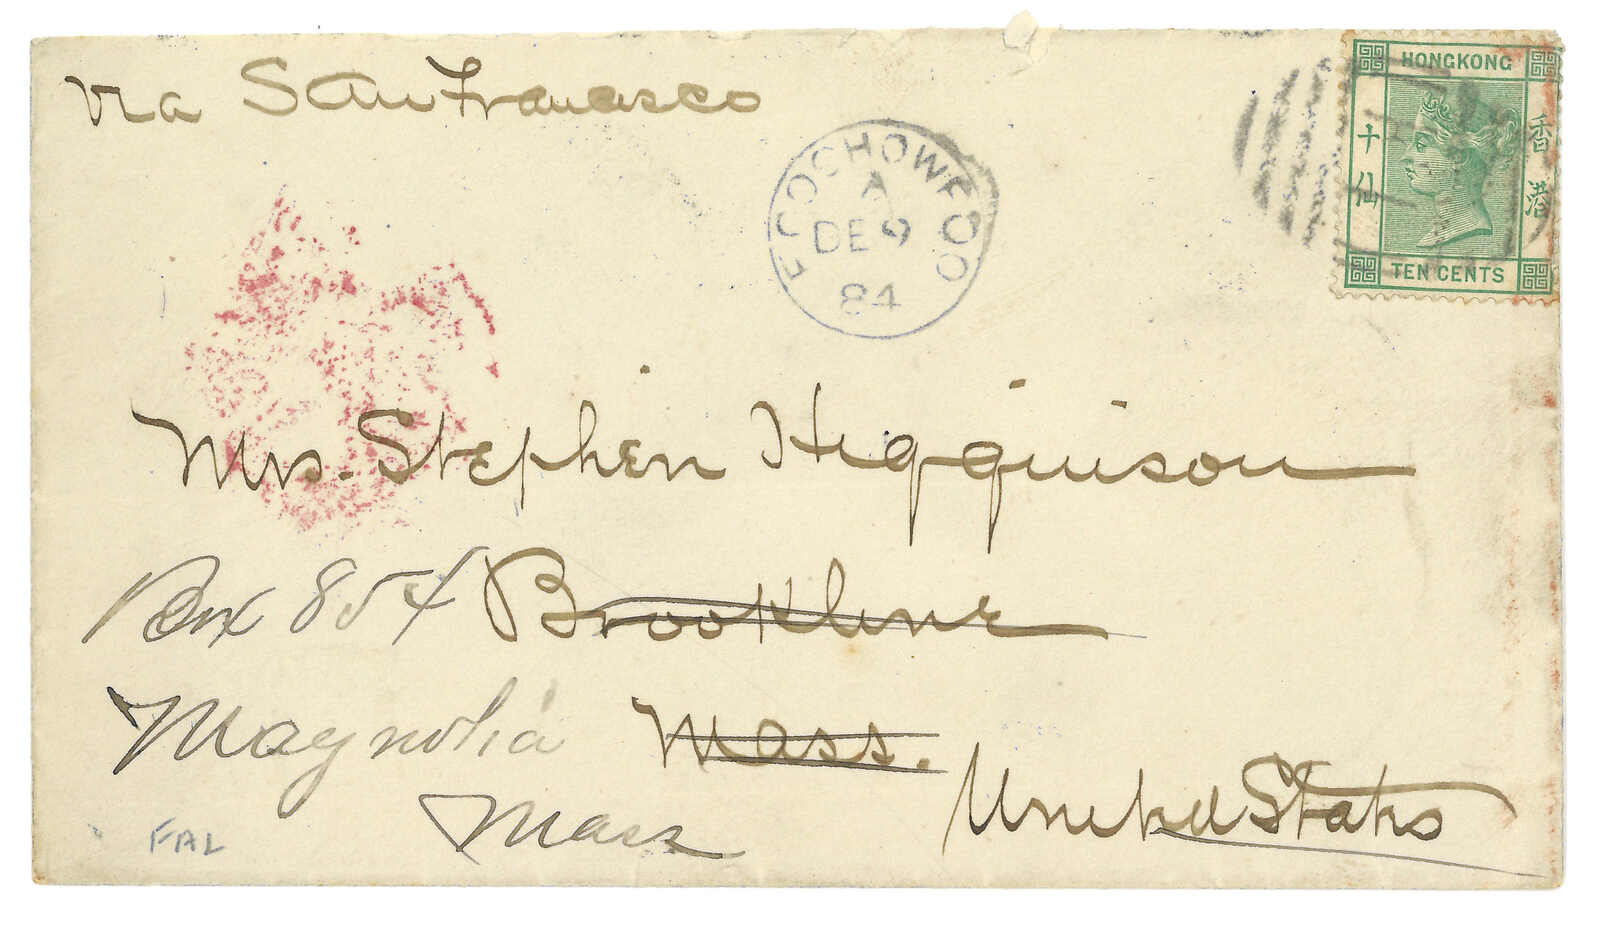 via San Francisco
HONGKONG
十仙
香港
TEN CENTS
FOOCHOWFOO
A
DE 9
84
Mrs. Stephen Higginson
Box 854 Brookline
Magnolia Mass.
Mass United States
FAL